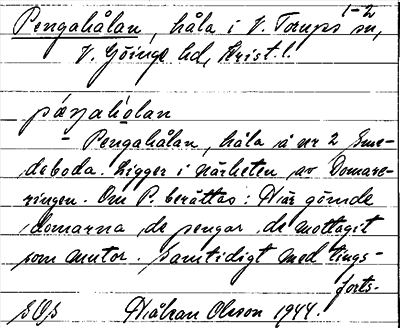 1-2
Pengahålan, håla i V. Torups sn,
V. Göinge hd, Krist. l.
pæŋahólan
- Pengahålan, håla å nr 2 Sme-
deboda. Ligger i närheten av Domare-
ringen. Om P. berättas: Här gömde
domarna de pengar de mottagit
som mutor. Samtidigt med tings-
forts.
Håkan Olsson 1944.